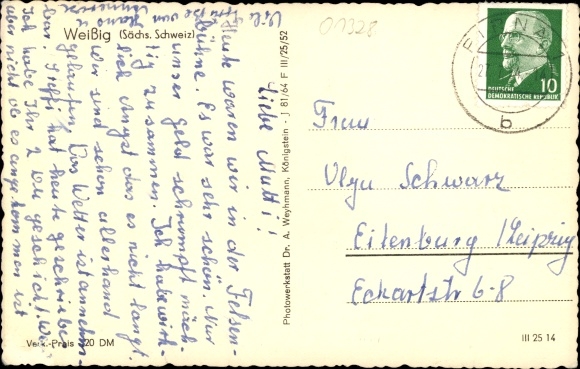 Weißig (Sächs. Schweiz)
Liebe Mutti!
Heute waren wir in der Felsen-
bühne. Es war sehr schön. Nur
unser Geld schrumpft mäch-
tig zusammen. Ich habe wirk-
lich Angst das es nicht langt.
wir sind schon allerhand
gelaufen. Das Wetter ist annehm-
bar. Steffi hat heute geschrieben
Ich habe Ihr 2 geschickt. Weiß
aber nicht ob es angekommen ist
Viele
Verk.-Preis -,20 DM
Photowerkstatt Dr. A. Weyhmann, Königstein - J 81/64 F III/25/52
01328
PIRNA
b
DEUTSCHE
DEMOKRATISCHE REPUBLIK
10
Frau
Olga Schwarz
Eilenburg / Leipzig
Eckartstr 6-8
III 25 14